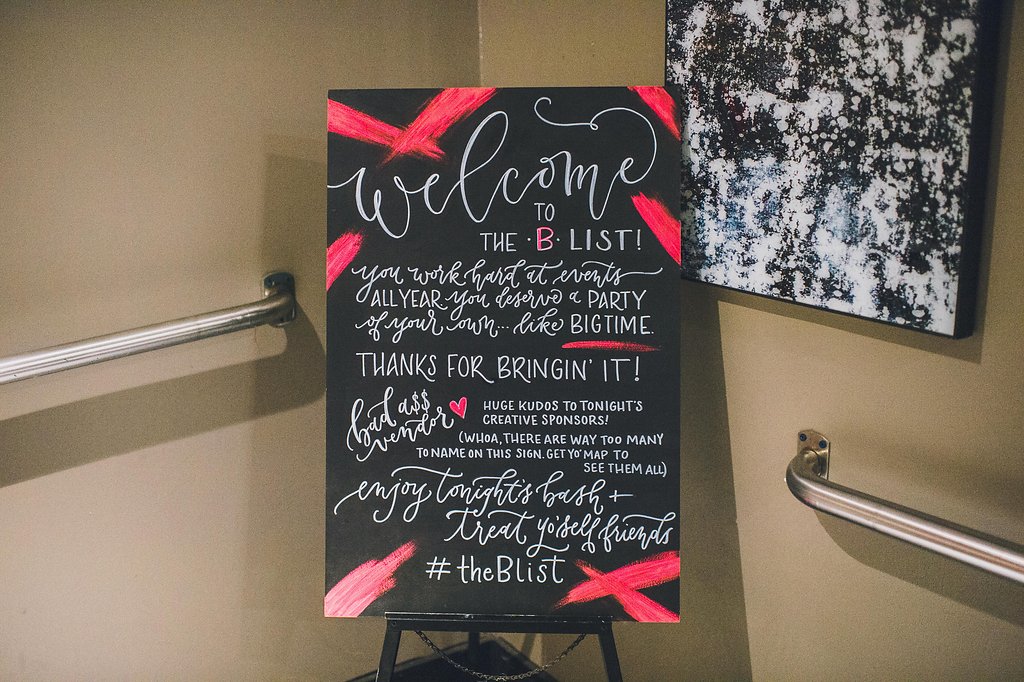 welcome
TO
THE · B · LIST!
you work hard at events
ALL YEAR you deserve a PARTY
of your own... like BIGTIME.
THANKS FOR BRINGIN' IT!
bad a$$
vendor
HUGE KUDOS TO TONIGHT'S
CREATIVE SPONSORS!
(WHOA, THERE ARE WAY TOO MANY
TO NAME ON THIS SIGN. GET YO' MAP TO
SEE THEM ALL)
enjoy tonight's bash +
treat yo'self friends
#theBlist